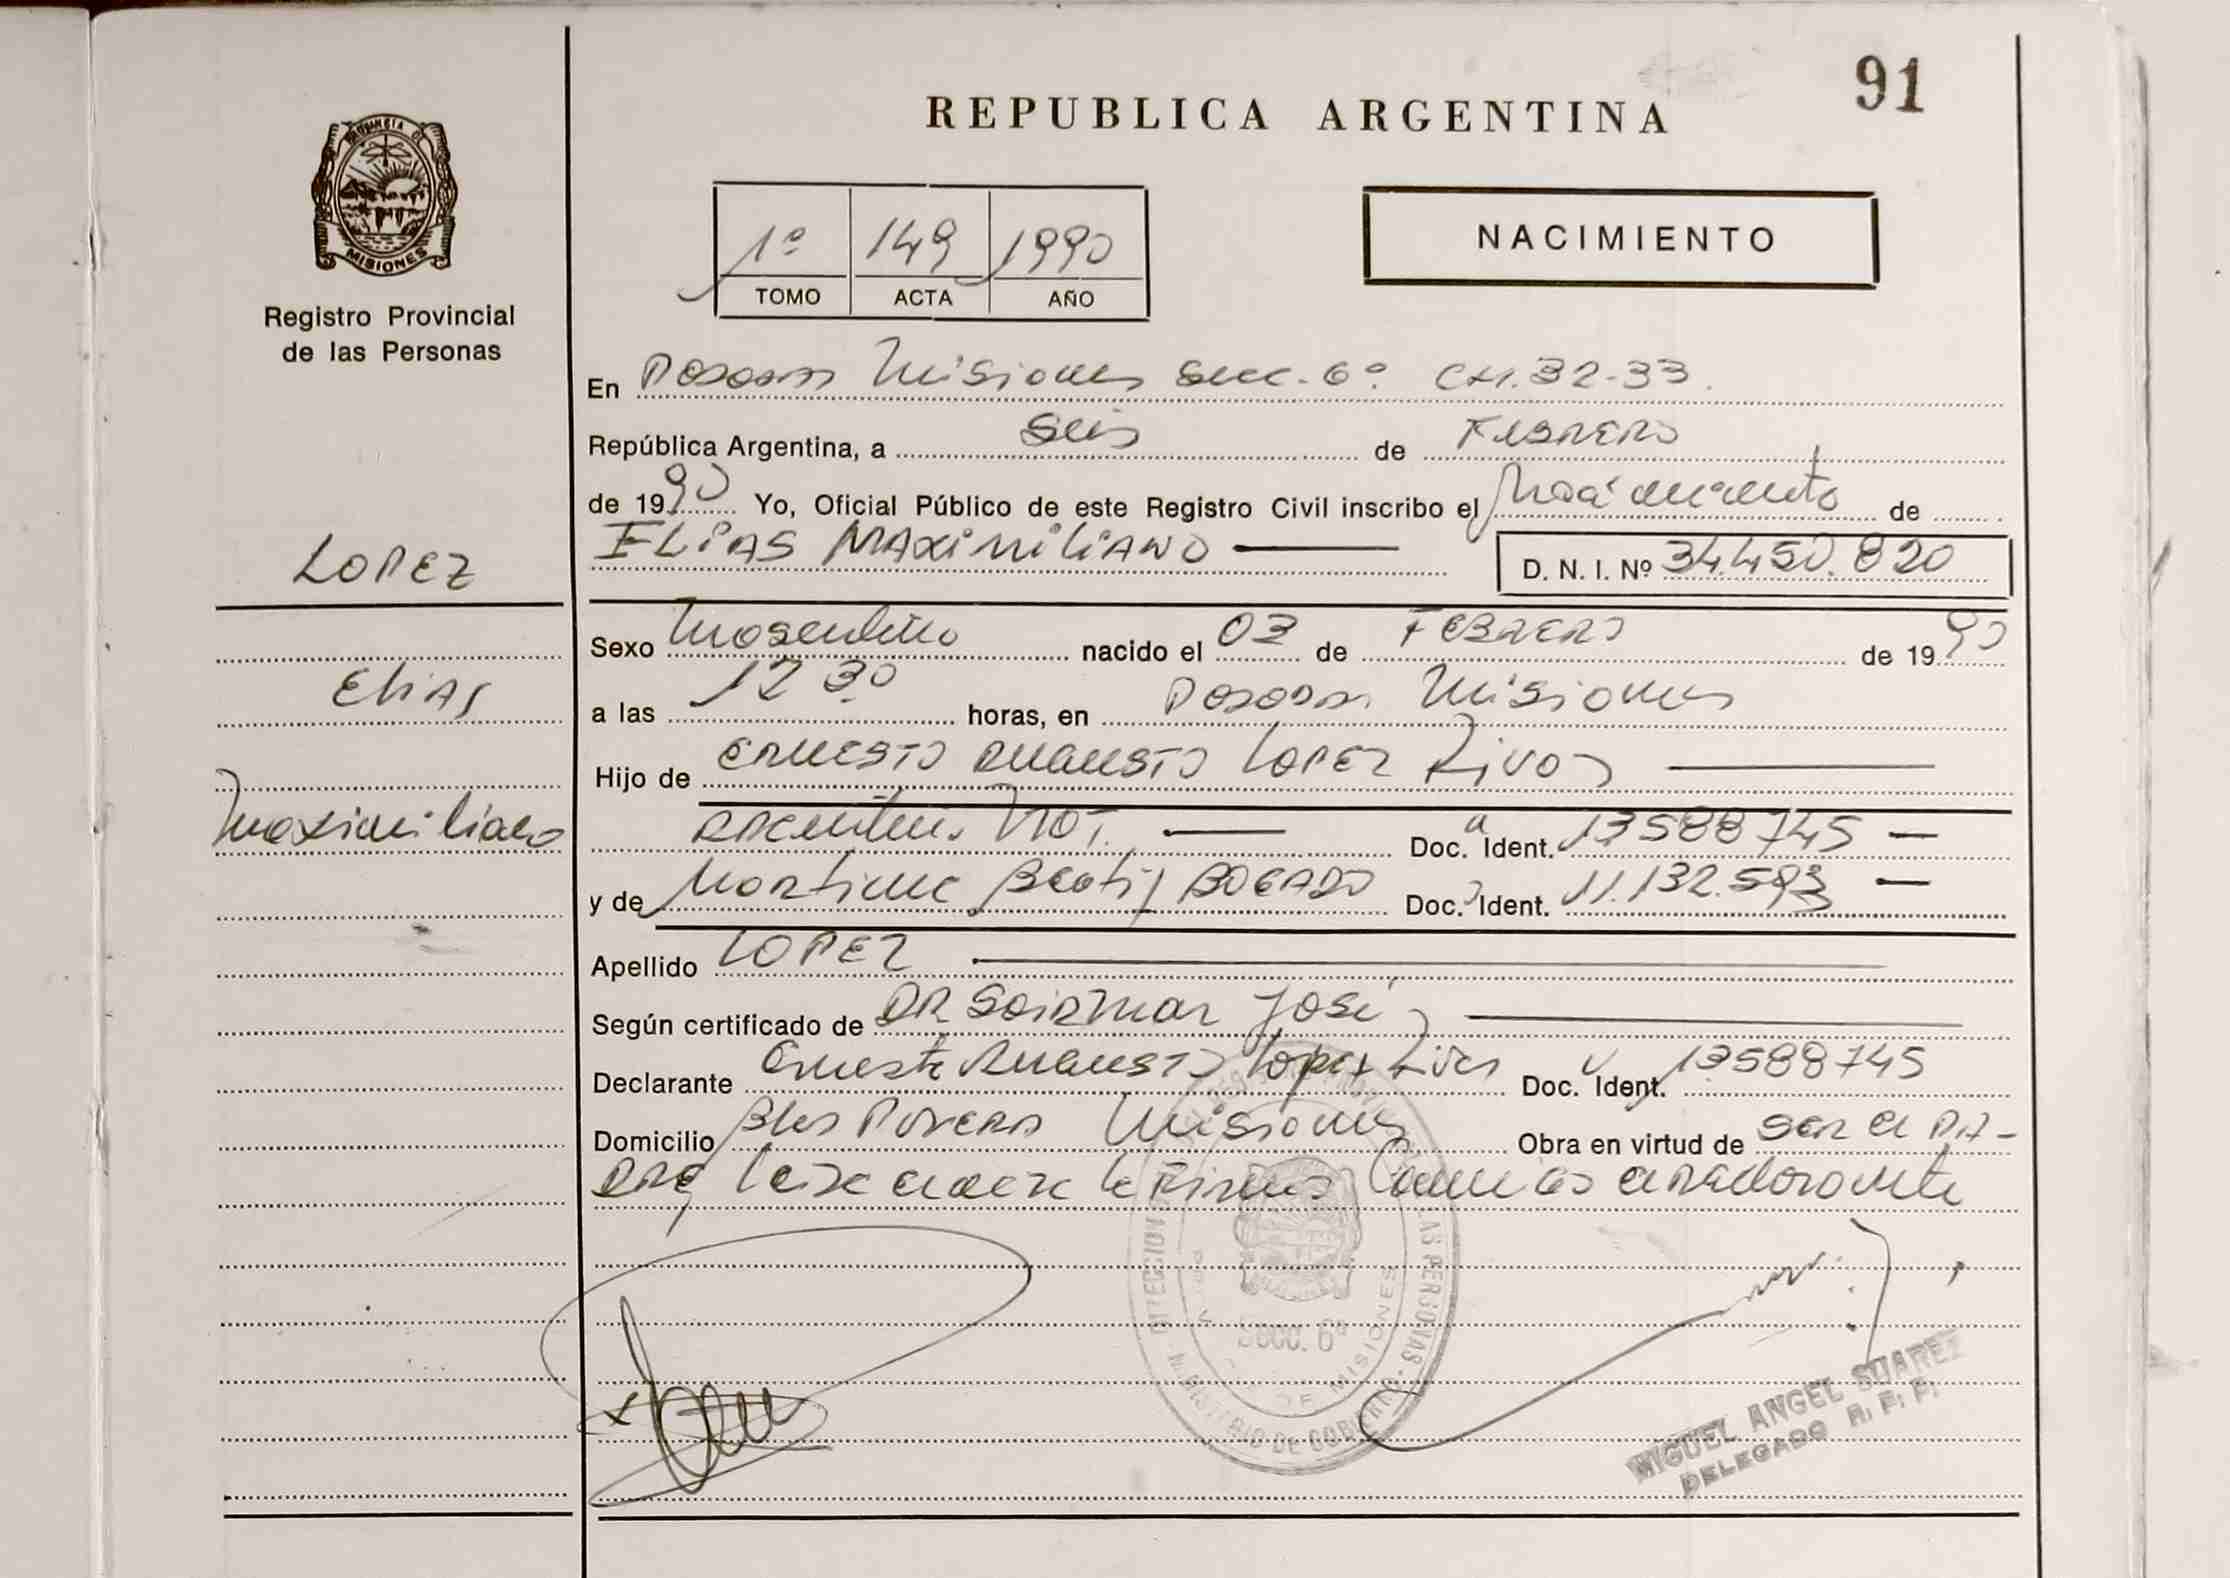 91
REPUBLICA ARGENTINA
PROVINCIA DE
MISIONES
Registro Provincial
de las Personas
1º 149 1990
TOMO ACTA AÑO
NACIMIENTO
En Posadas Misiones Secc. 6º CH. 32-33.
República Argentina, a Seis de FEBRERO
de 1990 Yo, Oficial Público de este Registro Civil inscribo el Nacimiento de
LOPEZ
ELIAS MAXIMILIANO
D. N. I. Nº 34.450.820
Sexo Masculino nacido el 03 de FEBRERO de 1990
Elias
a las 12 30 horas, en Posadas Misiones
Hijo de ERNESTO AUGUSTO LOPEZ Rivas
Maximiliano
Argentin. NAT. Doc. Ident. 13588745
y de Martinc Beatiz BOGADO Doc. Ident. 11.132.593
Apellido LOPEZ
Según certificado de DR José
Declarante Ernesto Augusto Lopez Rivas Doc. Ident. 13588745
Domicilio Blas Parera Misiones Obra en virtud de ser el PA-
DRE Leida el acta la Firma Conmigo el
SECC. 6ª
DIRECCION
LAS PERSONAS
MINISTERIO DE GOBIERNO
DE MISIONES
MIGUEL ANGEL SUAREZ
DELEGADO R. P. P.